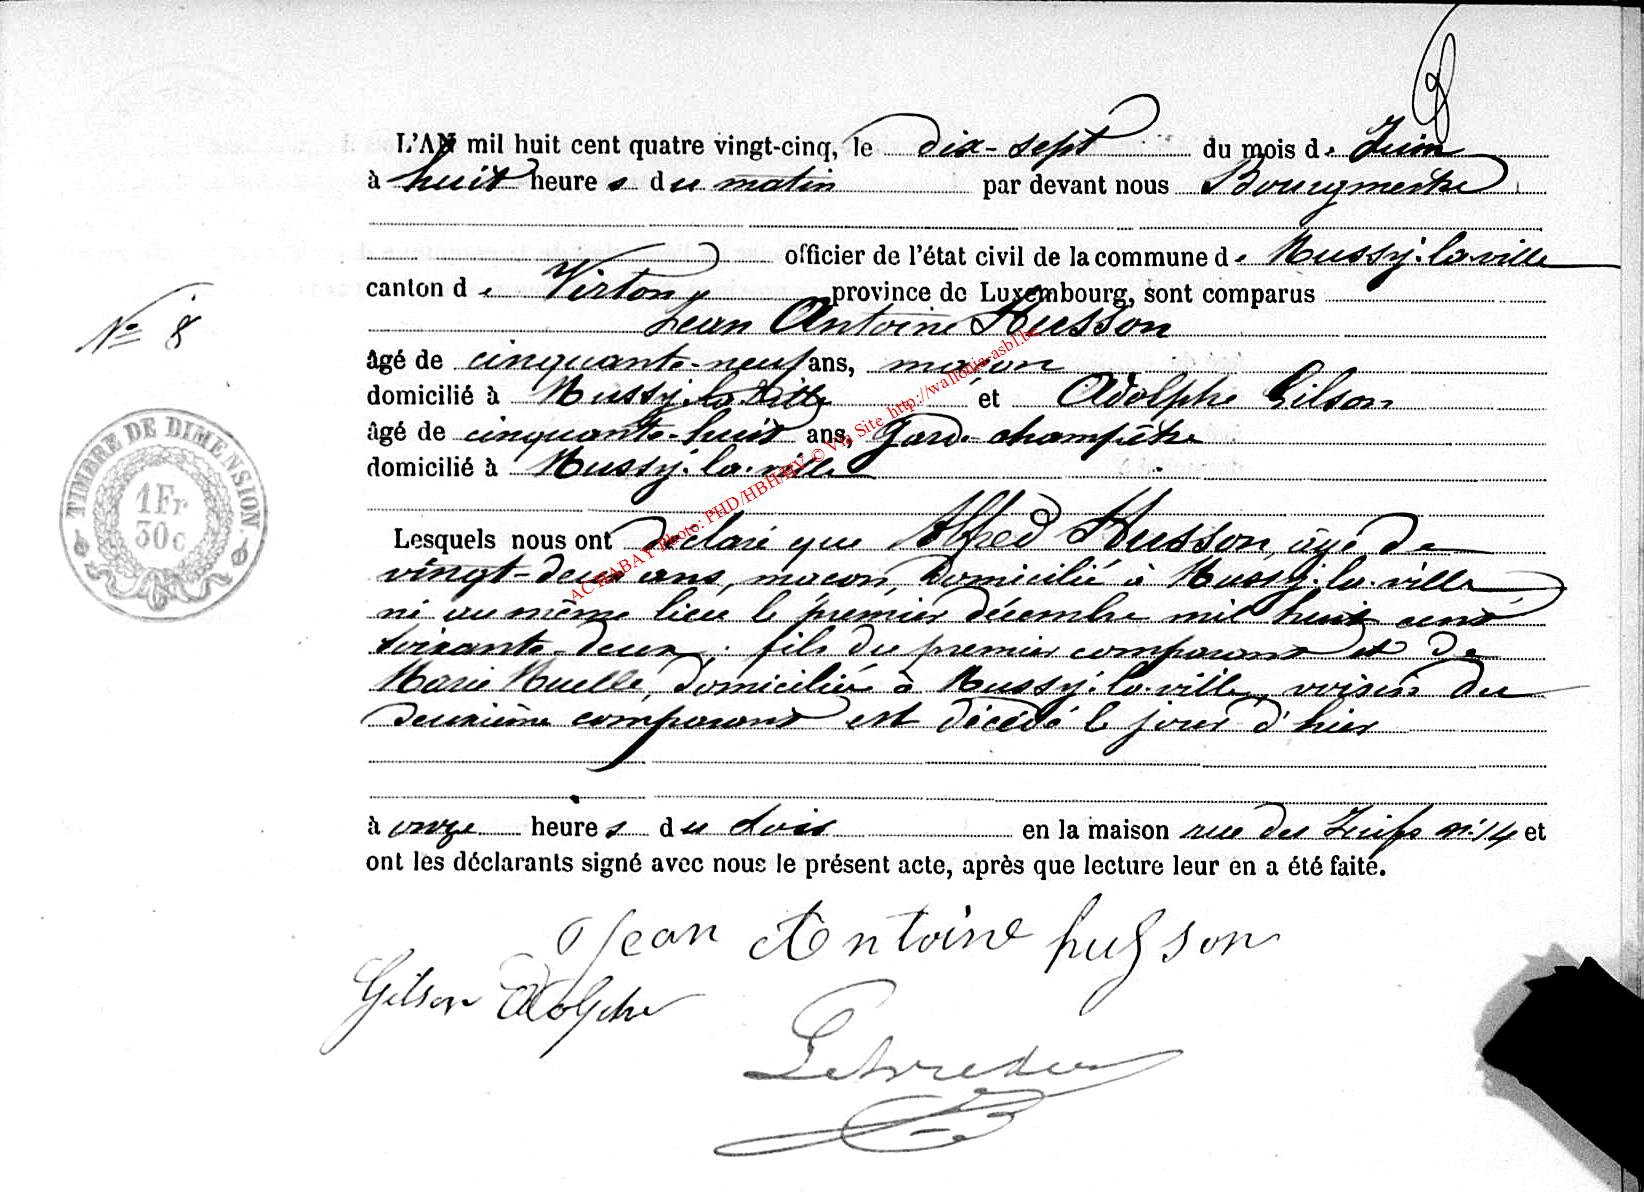 8
L'AN mil huit cent quatre vingt-cinq, le dix-sept du mois de Juin
à huit heures du matin par devant nous Bourgmestre
officier de l'état civil de la commune de Mussy-la-ville
canton de Virton province de Luxembourg, sont comparus
Jean Antoine Husson
N° 8
âgé de cinquante-neuf ans, maçon
domicilié à Mussy-la-Ville et Adolphe Gilson
âgé de cinquante-huit ans, Garde-champêtre
domicilié à Mussy-la-ville
TIMBRE DE DIMENSION
1 Fr
30 c
Lesquels nous ont déclaré que Alfred Husson, âgé de
vingt-deux ans, maçon, domicilié à Mussy-la-ville
né au même lieu le premier décembre mil huit cent
soixante-deux, fils du premier comparant et de
Marie Muelle, domiciliée à Mussy-la-ville, voisin du
deuxième comparant est décédé le jour d'hier
à onze heures du soir en la maison rue des Juifs n° 14 et
ont les déclarants signé avec nous le présent acte, après que lecture leur en a été faite.
Jean Antoine husson
Gilson Adolphe
AC HABAY Photo: PHD/HBH/HV © Via Site http://wallonia-asbl.be